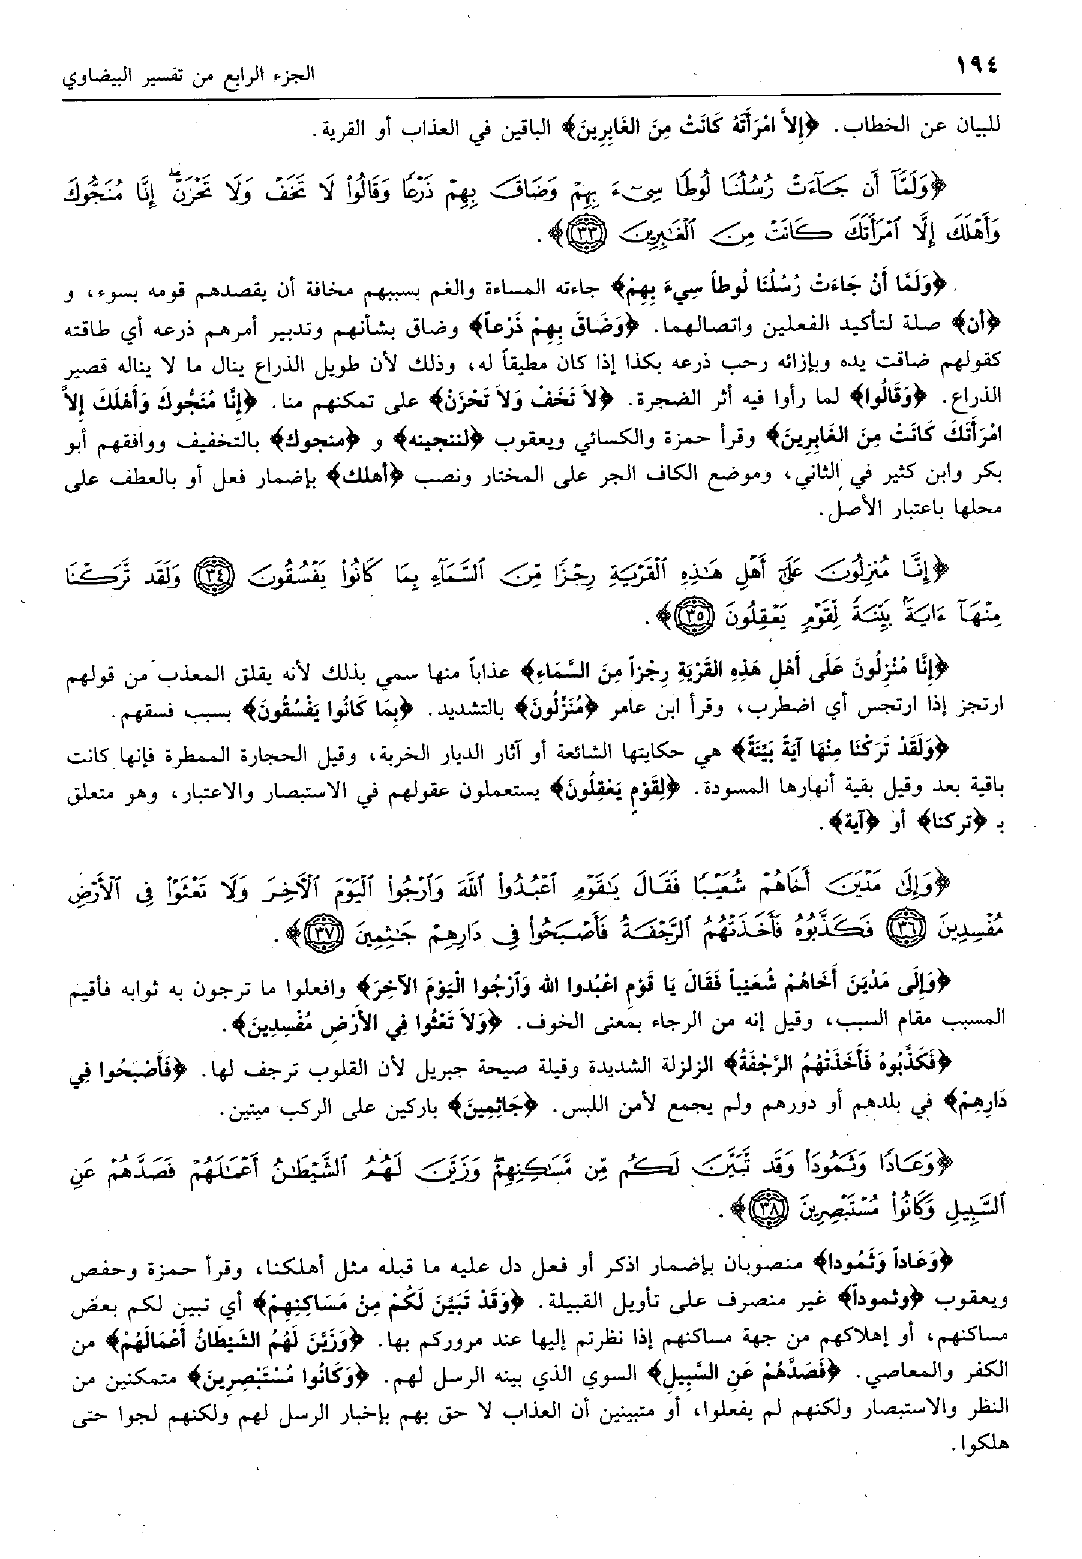 ١٩٤
الجزء الرابع من تفسير البيضاوي
للبيان عن الخطاب. ﴿إِلاَّ امْرَأَتَهُ كَانَتْ مِنَ الغَابِرِينَ﴾ الباقين في العذاب أو القرية.
﴿وَلَمَّآ أَن جَآءَتْ رُسُلُنَا لُوطًا سِىٓءَ بِهِمْ وَضَاقَ بِهِمْ ذَرْعًا وَقَالُوا۟ لَا تَخَفْ وَلَا تَحْزَنْ ۖ إِنَّا مُنَجُّوكَ
وَأَهْلَكَ إِلَّا ٱمْرَأَتَكَ كَانَتْ مِنَ ٱلْغَٰبِرِينَ ٣٣﴾.
﴿وَلَمَّا أَنْ جَاءَتْ رُسُلُنَا لُوطاً سِيءَ بِهِمْ﴾ جاءته المساءة والغم بسببهم مخافة أن يقصدهم قومه بسوء، و
﴿أن﴾ صلة لتأكيد الفعلين واتصالهما. ﴿وَضَاقَ بِهِمْ ذَرْعاً﴾ وضاق بشأنهم وتدبير أمرهم ذرعه أي طاقته
كقولهم ضاقت يده وبإزائه رحب ذرعه بكذا إذا كان مطيقاً له، وذلك لأن طويل الذراع ينال ما لا يناله قصير
الذراع. ﴿وَقَالُوا﴾ لما رأوا فيه أثر الضجرة. ﴿لاَ تَخَفْ وَلاَ تَحْزَنْ﴾ على تمكنهم منا. ﴿إِنَّا مُنَجُوكَ وَأَهْلَكَ إِلاَّ
امْرَأَتَكَ كَانَتْ مِنَ الغَابِرِينَ﴾ وقرأ حمزة والكسائي ويعقوب ﴿لننجينه﴾ و ﴿منجوك﴾ بالتخفيف ووافقهم أبو
بكر وابن كثير في الثاني، وموضع الكاف الجر على المختار ونصب ﴿أهلك﴾ بإضمار فعل أو بالعطف على
محلها باعتبار الأصل.
﴿إِنَّا مُنزِلُونَ عَلَىٰٓ أَهْلِ هَٰذِهِ ٱلْقَرْيَةِ رِجْزًا مِّنَ ٱلسَّمَآءِ بِمَا كَانُوا۟ يَفْسُقُونَ ٣٤ وَلَقَد تَّرَكْنَا
مِنْهَآ ءَايَةًۢ بَيِّنَةً لِّقَوْمٍ يَعْقِلُونَ ٣٥﴾.
﴿إِنَّا مُنْزِلُونَ عَلَى أَهْلِ هَذِهِ القَرْيَةِ رِجْزاً مِنَ السَّمَاءِ﴾ عذاباً منها سمي بذلك لأنه يقلق المعذب من قولهم
ارتجز إذا ارتجس أي اضطرب، وقرأ ابن عامر ﴿مُنَزِّلُونَ﴾ بالتشديد. ﴿بِمَا كَانُوا يَفْسُقُونَ﴾ بسبب فسقهم.
﴿وَلَقَدْ تَرَكْنَا مِنْهَا آيَةً بَيِّنَةً﴾ هي حكايتها الشائعة أو آثار الديار الخربة، وقيل الحجارة الممطرة فإنها كانت
باقية بعد وقيل بقية أنهارها المسودة. ﴿لِقَوْمٍ يَعْقِلُونَ﴾ يستعملون عقولهم في الاستبصار والاعتبار، وهو متعلق
بـ ﴿تركنا﴾ أو ﴿آية﴾.
﴿وَإِلَىٰ مَدْيَنَ أَخَاهُمْ شُعَيْبًا فَقَالَ يَٰقَوْمِ ٱعْبُدُوا۟ ٱللَّهَ وَٱرْجُوا۟ ٱلْيَوْمَ ٱلْـَٔاخِرَ وَلَا تَعْثَوْا۟ فِى ٱلْأَرْضِ
مُفْسِدِينَ ٣٦ فَكَذَّبُوهُ فَأَخَذَتْهُمُ ٱلرَّجْفَةُ فَأَصْبَحُوا۟ فِى دَارِهِمْ جَٰثِمِينَ ٣٧﴾.
﴿وَإِلَى مَدْيَنَ أَخَاهُمْ شُعَيْباً فَقَالَ يَا قَوْمِ اعْبُدوا الله وَارْجُوا الْيَوْمَ الآخِرَ﴾ وافعلوا ما ترجون به ثوابه فأقيم
المسبب مقام السبب، وقيل إنه من الرجاء بمعنى الخوف. ﴿وَلاَ تَعْثُوا فِي الأَرْضِ مُفْسِدِينَ﴾.
﴿فَكَذَّبُوهُ فَأَخَذَتْهُمُ الرَّجْفَةُ﴾ الزلزلة الشديدة وقيلة صيحة جبريل لأن القلوب ترجف لها. ﴿فَأَصْبَحُوا فِي
دَارِهِمْ﴾ في بلدهم أو دورهم ولم يجمع لأمن اللبس. ﴿جَاثِمِينَ﴾ باركين على الركب ميتين.
﴿وَعَادًا وَثَمُودَا۟ وَقَد تَّبَيَّنَ لَكُم مِّن مَّسَٰكِنِهِمْ ۖ وَزَيَّنَ لَهُمُ ٱلشَّيْطَٰنُ أَعْمَٰلَهُمْ فَصَدَّهُمْ عَنِ
ٱلسَّبِيلِ وَكَانُوا۟ مُسْتَبْصِرِينَ ٣٨﴾.
﴿وَعَاداً وَثَمُودا﴾ منصوبان بإضمار اذكر أو فعل دل عليه ما قبله مثل أهلكنا، وقرأ حمزة وحفص
ويعقوب ﴿وثموداً﴾ غير منصرف على تأويل القبيلة. ﴿وَقَدْ تَبَيَّنَ لَكُمْ مِنْ مَسَاكِنِهِمْ﴾ أي تبين لكم بعض
مساكنهم، أو إهلاكهم من جهة مساكنهم إذا نظرتم إليها عند مروركم بها. ﴿وَزَيَّنَ لَهُمُ الشَيْطَانُ أَعْمَالَهُمْ﴾ من
الكفر والمعاصي. ﴿فَصَدَّهُمْ عَنِ السَّبِيلِ﴾ السوي الذي بينه الرسل لهم. ﴿وَكَانُوا مُسْتَبْصِرِينَ﴾ متمكنين من
النظر والاستبصار ولكنهم لم يفعلوا، أو متبينين أن العذاب لا حق بهم بإخبار الرسل لهم ولكنهم لجوا حتى
هلكوا.